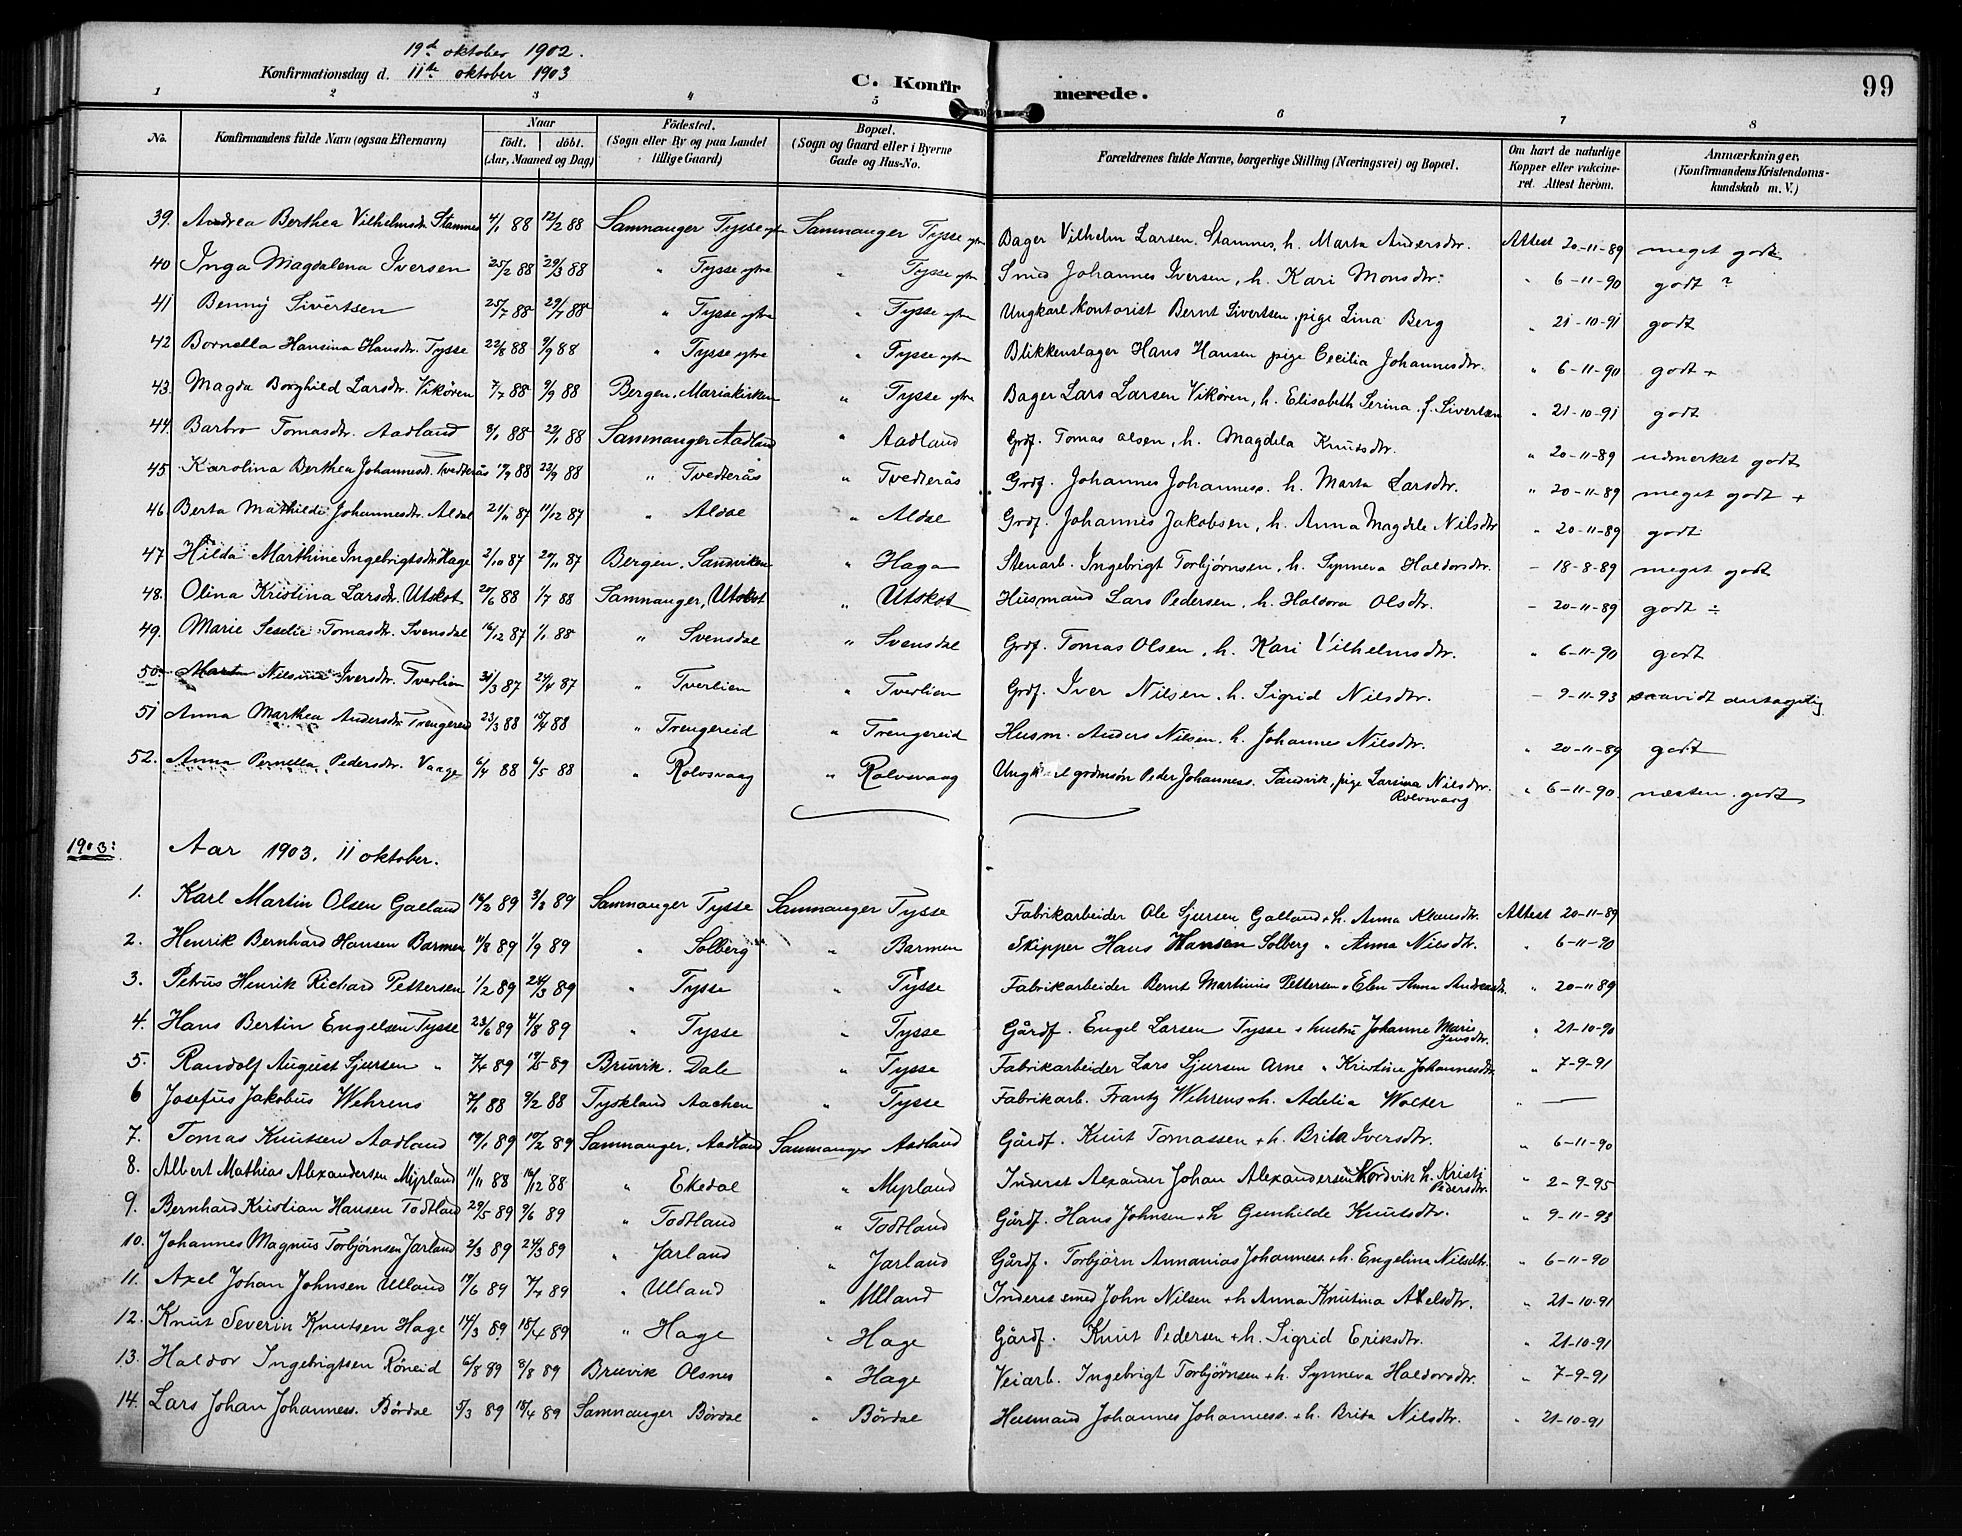 19de oktober 1902.
Konfirmationsdag d. 11te oktober 1903
C. Konfirmerede.
99
1 2 3 4 5 6 7 8
No. Konfirmandens fulde Navn (ogsaa Efternavn) Naar født. døbt. (Aar, Maaned og Dag) Fødested. (Sogn eller By og paa Landet tillige Gaard) Bopæl. (Sogn og Gaard eller i Byerne Gade og Hus-No. Forældrenes fulde Navne, borgerlige Stilling (Næringsvei) og Bopæl. Om havt de naturlige Kopper eller vakcineret. Attest herom. Anmærkninger. (Konfirmandens Kristendomskundskab m. V.)
39. Andrea Berthea Vilhelmsdr. Stamnes 4/1 88 12/2 88 Samnanger Tysse ytre Samnanger Tysse ytre Bager Vilhelm Larsen Stamnes, h. Marta Andersdtr. Attest 20-11-89 meget godt
40 Inga Magdalena Iversen 25/2 88 29/3 88 " Tysse ytre " Tysse ytre Smed Johannes Iversen, h. Kari Monsdtr. " 6-11-90 godt ?
41 Benny Sivertsen 25/7 88 29/7 88 " Tysse ytre " Tysse ytre Ungkarl kontorist Bernt Sivertsen, pige Lina Berg " 21-10-91 godt
42 Bornella Hansina Hansdtr. Tysse 22/8 88 9/9 88 " Tysse ytre " Tysse ytre Blikkenslager Hans Hansen pige Cecilia Johannesdtr. " 6-11-90 godt +
43. Magda Borghild Larsdtr. Vikøren 7/7 88 9/9 88 Bergen, Mariakirken " Tysse ytre Bager Lars Larsen Vikøren, h. Elisabeth Serina f. Sivertsen " 21-10-91 godt
44. Barbro Tomasdtr. Aadland 3/1 88 22/1 88 Samnanger Aadland " Aadland Grdf. Tomas Olsen, h. Magdela Knutsdtr. " 20-11-89 udmerket godt
45 Karolina Berthea Johannesdt. Tvedterås 17/9 88 23/9 88 " Tvedterås " Tvedterås Grdf. Johannes Johanness. h. Marta Larsdtr. " 20-11-89 meget godt +
46 Berta Mathilde Johannesdtr. Aldal 21/11 87 11/12 87 " Aldal " Aldal Grdf. Johannes Jakobsen, h. Anna Magdele Nilsdtr " 20-11-89 godt
47 Hilda Marthine Ingebrigtsdtr. Hage 2/10 87 20/11 87 Bergen, Sandviken " Haga Stenarb. Ingebrigt Torbjørnsen, h. Synneva Haldorsdtr. - 18-8-89 meget godt
48. Olina Kristina Larsdtr. Utskot 20/6 88 1/7 88 Samnanger, Utskot " Utskot Husmand Lars Pedersen, h. Haldora Olsdtr. - 20-11-89 godt ÷
49. Marie Seselie Tomasdtr. Svensdal 16/12 87 1/1 88 " Svensdal " Svensdal Grdf. Tomas Olsen, h. Kari Vilhelmsdtr. " 6-11-90 godt
50. Nilsine Iversdtr. Tverlien 31/3 87 24/4 87 " Tverlien " Tverlien Grdf. Iver Nilsen, h. Sigrid Nilsdtr. - 9-11-93 saavidt antagelig
51 Anna Marthea Andersdtr. Trengereid 23/3 88 15/4 88 " Trengereid " Trengereid Husm. Anders Nilsen, h. Johannes Nilsdtr. " 20-11-89 godt
52. Anna Pernella Pedersdtr. Vaage 6/4 88 6/5 88 " Rolvsvaag " Rolvsvaag Ungkarl grdmsøn Peder Johanness. Sandvik, pige Larsina Nilsdtr. Rolvsvaag " 6-11-90. næsten godt
1903: Aar 1903. 11 oktober.
1. Karl Martin Olsen Galland 14/2 89 3/3 89 Samnanger Tysse Samnanger Tysse Fabrikarbeider Ole Sjursen Galland + h. Anna Klausdtr. Attest 20-11-89
2. Henrik Bernhard Hansen Barmen 11/8 89 1/9 89 " Solberg " Barmen Skipper Hans Hansen Solberg " Anna Nilsdtr. " 6-11-90
3. Petrus Henrik Richard Pettersen 1/2 89 24/3 89 " Tysse " Tysse Fabrikarbeider Bernt Martinius Pettersen " Elen Anna Andreasdtr. " 20-11-89
4. Hans Bertin Engelsen Tysse 23/6 89 4/8 89 " Tysse " Tysse Gårdf. Engel Larsen Tysse + hustru Johanne Marie Jensdtr. " 21-10-90
5. Randolf August Sjursen " 7/4 89 19/5 89 Bruvik. Dale " Tysse Fabrikarbeider Lars Sjursen Arne " Kristine Johannesdtr " 7-9-91
6 Josefus Jakobus Wehrens 7/1 88 9/2 88 Tyskland Aachen " Tysse Fabrikarb. Frantz Wehrens + h. Adelia Wolter " —
7. Tomas Knutsen Aadland 19/1 89 17/2 89 Samnanger, Aadland Samnanger Aadland Gårdf. Knut Tomassen + h. Brita Iversdtr. " 6-11-90
8. Albert Mathias Alexandersen Myrland 11/11 88 16/12 88 " Ekedal " Myrland Inderst Alexander Johan Alexandersen Nordvik h. Kristi Pedersdtr. " 2-9-95
9. Bernhard Kristian Hansen Todtland 29/5 89 9/6 89 " Todtland " Todtland Gårdf. Hans Johnsen + h Gunhilde Knutsdtr. " 9-11-93
10. Johannes Magnus Torbjørnsen Jarland 2/3 89 24/3 89 " Jarland " Jarland Gårdf. Torbjørn Annanias Johanness. + h. Engelina Nilsdtr. " 6-11-90
11. Axel Johan Johnsen Ulland 17/6 89 7/7 89 " Ulland " Ulland Inderst smed John Nilsen + h Anna Knutina Axelsdtr. " 21-10-91
12. Knut Severin Knutsen Hage 14/3 89 18/4 89 " Hage " Hage Gårdf. Knut Pedersen + h. Sigrid Eriksdtr. " 21-10-91
13. Haldor Ingebrigtsen Røneid 6/8 89 8/8 89 Bruvik Olsnes " Hage Veiarb. Ingebrigt Torbjørnsen + h. Synneva Haldorsdtr. " 7-9-91
14. Lars Johan Johanness. Bördal 5/3 89 18/4 89 Samnanger Bördal " Bördal Husmand Johannes Johanness. + h. Brita Nilsdtr. " 21-10-91